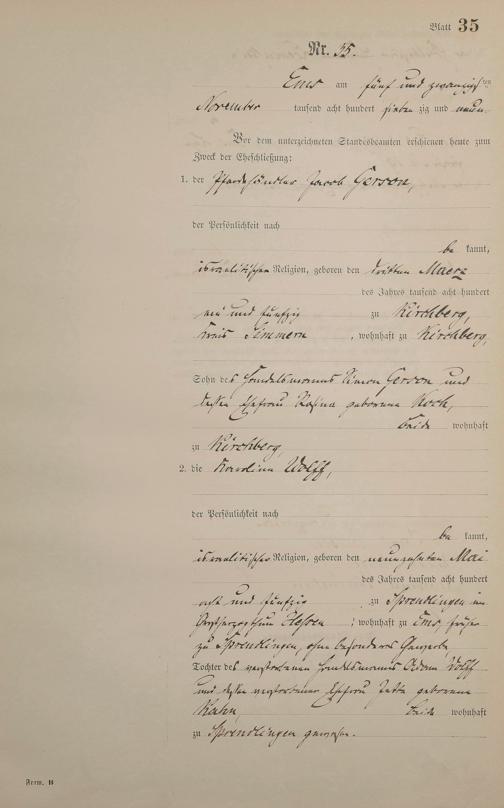 Blatt 35
Nr. 35.
Ems am fünf und zwanzigsten
November tausend acht hundert sieben zig und neun
Vor dem unterzeichneten Standesbeamten erschienen heute zum
Zweck der Eheschließung:
1. der Pferdehändler Jacob Gerson,
der Persönlichkeit nach
be kannt,
israelitischer Religion, geboren den dritten Maerz
des Jahres tausend acht hundert
und fünfzig zu Kirchberg,
Kreis Simmern, wohnhaft zu Kirchberg,
Sohn des Handelsmanns Simon Gerson und
dessen Ehefrau Rosina geborene Koch,
beide wohnhaft
zu Kirchberg,
2. die Karolina Wolff,
der Persönlichkeit nach
be kannt,
israelitischer Religion, geboren den neunzehnten Mai
des Jahres tausend acht hundert
acht und fünfzig zu Sprendlingen im
Großherzogthum Hessen, wohnhaft zu Ems, früher
zu Sprendlingen, ohne besonderes Gewerbe
Tochter des verstorbenen Handelsmanns Adam Wolff
und dessen verstorbener Ehefrau Jette geborene
Kahn, beide wohnhaft
zu Sprendlingen gewesen.
Form. B